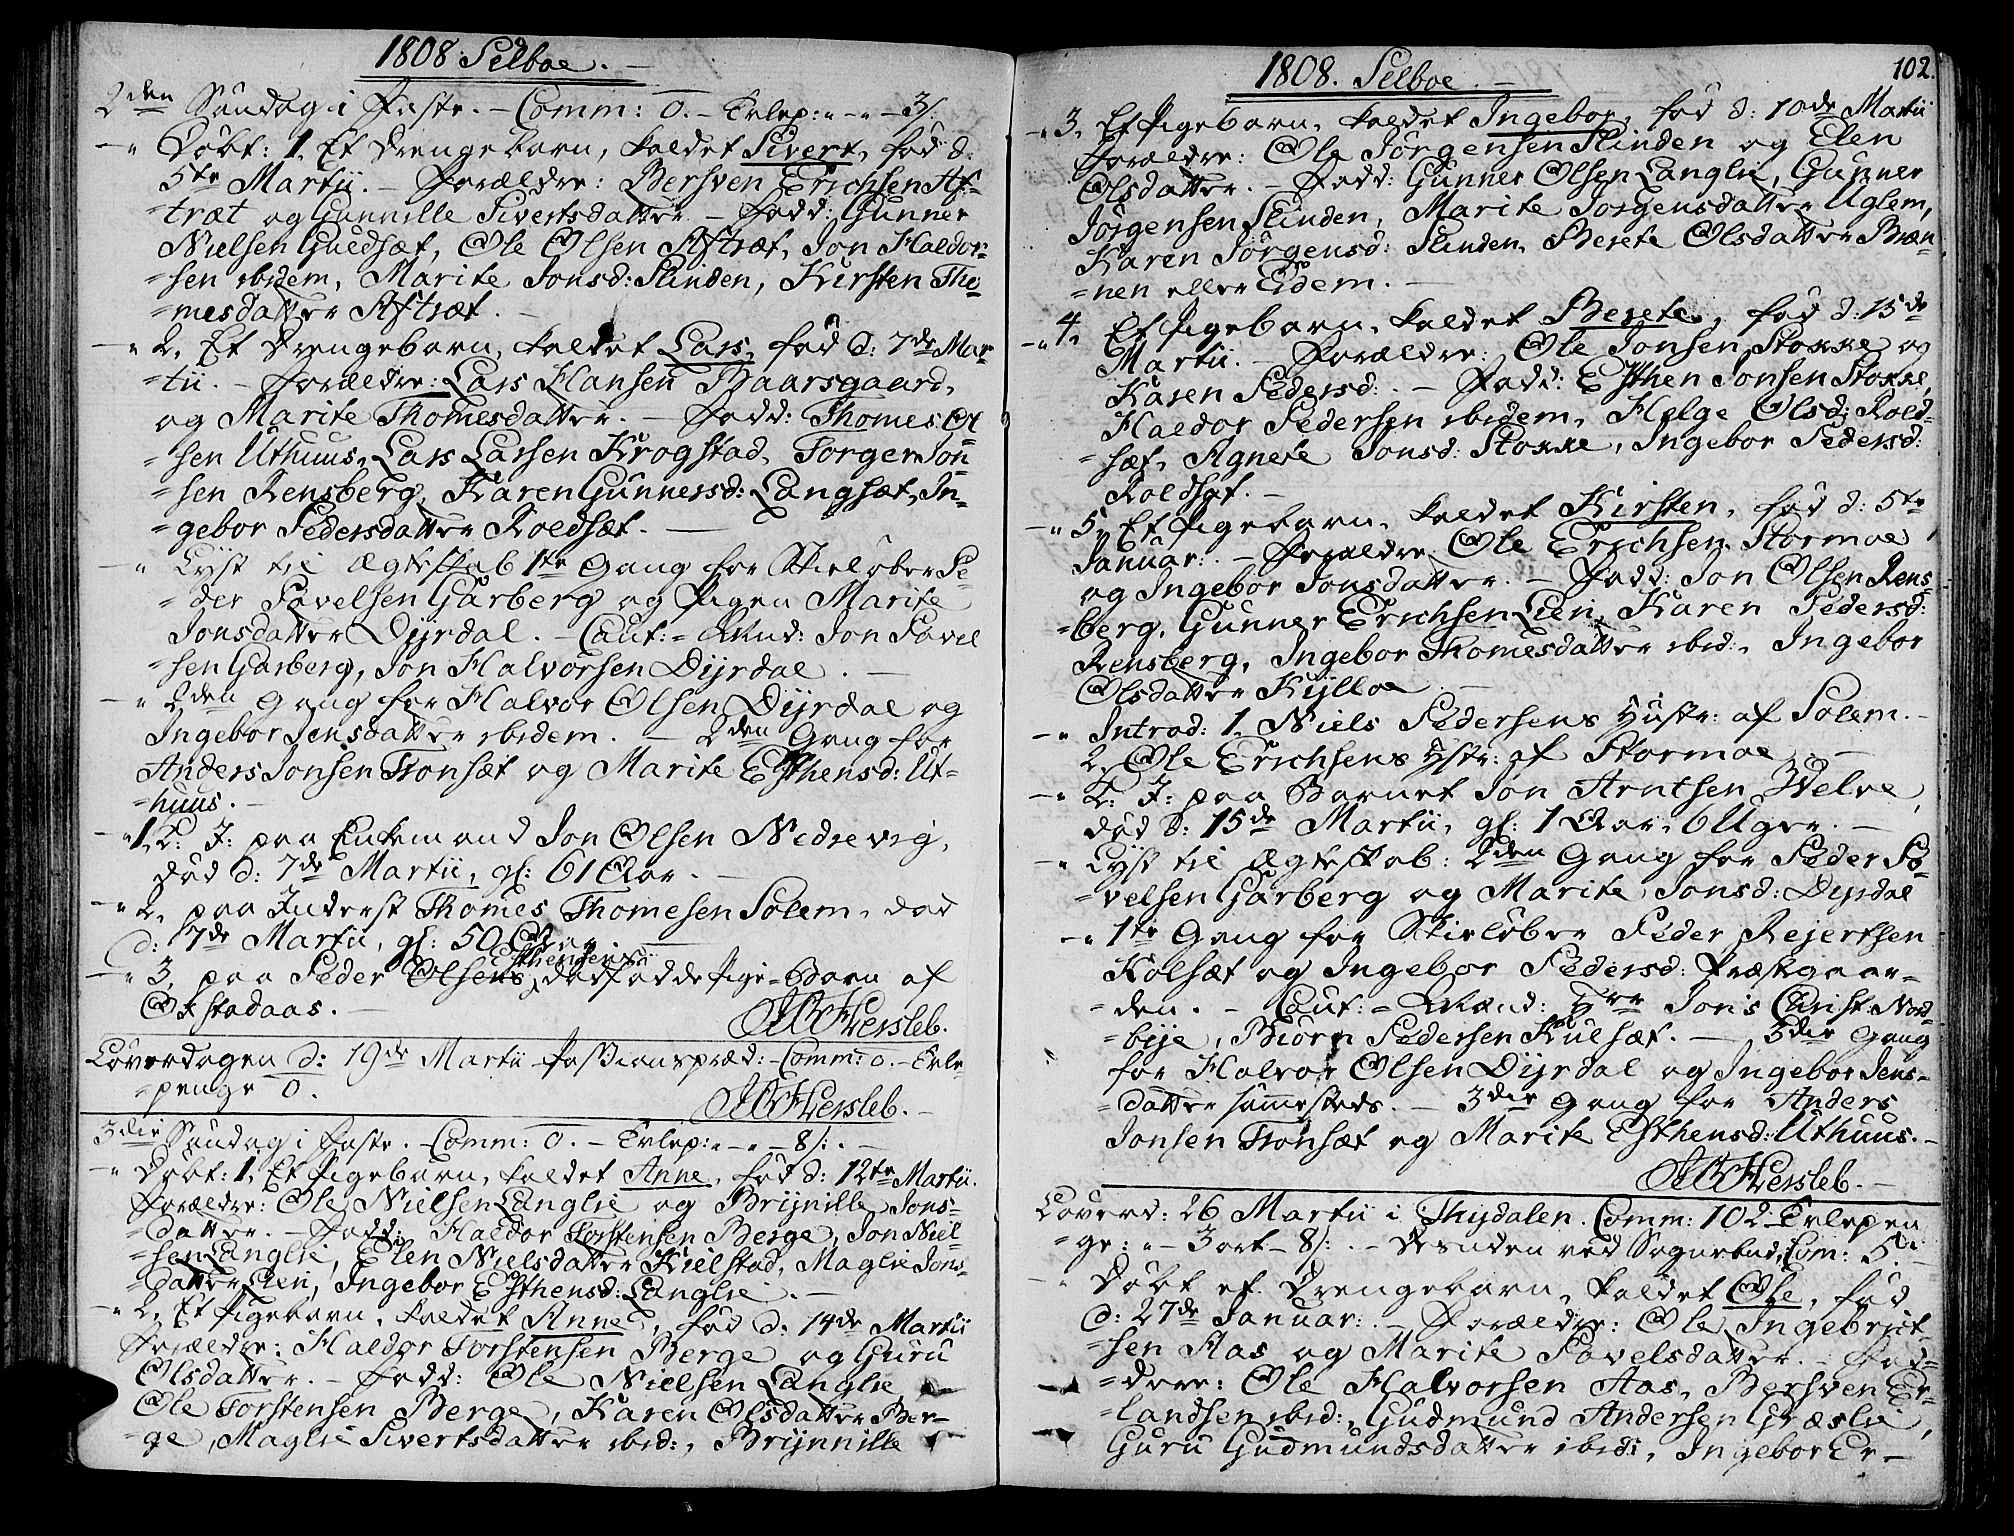 1808 Selboe.
2den Søndag i Faste. – Comm: 0. – Evlep: " – " – 3/:
– " Døbt: 1, Et Drengebarn, kaldet Sivert, fød d:
5te Martii. – Forældre: Bersven Erichsen Af-
-træt og Gunnille Sivertsdatter – Fadd: Gunner
Nielsen Guldsæt, Ole Olsen Aftræt, Jon Haldor-
-sen ibidem, Marite Jonsd: Slinden, Kirsten Tho-
-mesdatter Aftræt. –
– " 2, Et Drengebarn, kaldet Lars, fød d: 7de Mar-
-tii. – Forældre: Lars Hansen Baarsgaard,
og Marite Thomesdatter. – Fadd: Thomes Ol-
-sen Uthuus, Lars Larsen Krogstad, Torger Jon-
-sen Rensberg, Karen Gunnersd: Langsæt, In-
-gebor Pedersdatter Roldsæt. –
– " Lyst til Ægteskab 1te Gang for Skieløber Pe-
-der Povelsen Garberg og Pigen Marite
Jonsdatter Dyrdal. – Caut:-Mænd: Jon Povel
-sen Garberg, Jon Halvorsen Dyrdal. –
– " 2den Gang for Halvor Olsen Dyrdal og
Ingebor Jensdatter ibidem. – 2den Gang for
Anders Jonsen Tronsæt og Marite Esthensd: Ut-
-huus. –
– " 1, L: J: paa Enkemand Jon Olsen Nedrevig,
død d: 7de Martii, gl: 61 Aar. –
– " 2, paa Inderst Thomes Thomesen Solem, død
d: 7de Martii, gl: 50 Aar. –
Esthensens
– " 3, paa Peder Olsens dødfødde Pige-Barn af
Okstadaas. –
HBHersleb.
Løverdagen d: 19de Martii Passionspræd: Comm: 0. – Evle-
-penge 0.
HBHersleb. –
3die Søndag i Faste. Comm: 0. – Evlep: " – " – 8/: –
– " Døbt: 1, Et Pigebarn, kaldet Anne, fød d: 12te Martii.
Forældre: Ole Nielsen Langlie og Brynille Jons-
-datter. – Fadd: Haldor Torstensen Berge, Jon Niel-
-sen Langlie, Elen Nielsdatter Kielstad, Maglie Jons-
-datter Lien, Ingebor Esthensd: Langlie. –
– " 2, Et Pigebarn, kaldet Anne, fød d: 14de Martii
Forældre: Haldor Torstensen Berge og Guru
Olsdatter. – Fadd: Ole Nielsen Langlie,
Ole Torstensen Berge, Karen Olsdatter Ber-
-ge, Maglie Sivertsdatter ibid:, Brynnille
1808. Selboe. –
102.
– " 3, Et Pigebarn, kaldet Ingebor, fød d: 10de Martii
Forældre: Ole Jørgensen Slinden og Elen
Olsdatter. – Fadd: Gunner Olsen Langlie, Gunner
Jørgensen Slinden, Marite Jørgensdatter Uglem,
Karen Jørgensd: Slinden, Berete Olsdatter Bræn-
-nen eller Eidem. –
– " 4, Et Pigebarn, kaldet Berete, fød d: 15de
Martii. – Forældre: Ole Jonsen Stokke og
Karen Pedersd: – Fadd: Esthen Jonsen Stokke,
Haldor Pedersen ibidem, Helge Olsd: Rold-
-sæt, Agnete Jonsd: Stokke, Ingebor Pedersd:
Roldsæt. –
– " 5, Et Pigebarn, kaldet Kirsten, fød d: 5te
Januar: – Forældre: Ole Erichsen Stormoe
og Ingebor Jonsdatter. – Fadd: Jon Olsen Rens-
-berg, Gunner Erichsen Lien, Karen Pedersd:
Rensberg, Ingebor Thomesdatter ibid:, Ingebor
Olsdatter Kylloe –
– " Introd: 1, Niels Pedersens Hustr: af Solem. –
2, Ole Erichsens Hstr: af Stormoe. –
– " L: J: paa Barnet Jon Arntsen Welve,
død d: 15de Martii, gl: 1 Aar, 6 Uger. –
– " Lyst til Ægteskab: 2den Gang for Peder Po-
-velsen Garberg og Marite Jonsd: Dyrdal
– " 1te Gang for Skieløber Peder Rejertsen
Kolsæt og Ingebor Pedersd: Præstgaar-
-den. – Caut:-Mænd: Hrr Jonis Christ: Nord-
-bye, Biørn Pedersen Kulsæt. – 3die Gang
for Halvor Olsen Dyrdal og Ingebor Jens-
-datter sammesteds. – 3die Gang for Anders
Jonsen Tronsæt og Marite Esthensd: Uthuus. –
HBHersleb. –
Løverd: 26 Martii i Thydalen. Comm: 102. Evlepen
-ge: " – 3 ort – 8/: – Desuden ved Sognebud, Com: 5. –
– " Døbt et Drengebarn, kaldet Ole, fød
d: 27de Januar: – Forældre: Ole Ingebrigt-
-sen Aas og Marite Povelsdatter. – Fad-
-dere: Ole Halvorsen Aas, Bersven Er-
-landsen ibid:, Gudmund Andersen Græslie,
Guru Gudmundsdatter ibid:, Ingebor Er-